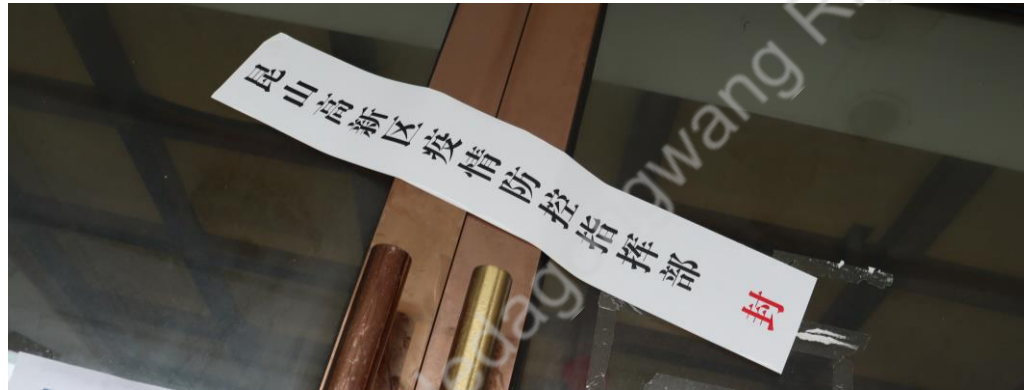 昆山高新区疫情防控指挥部 封